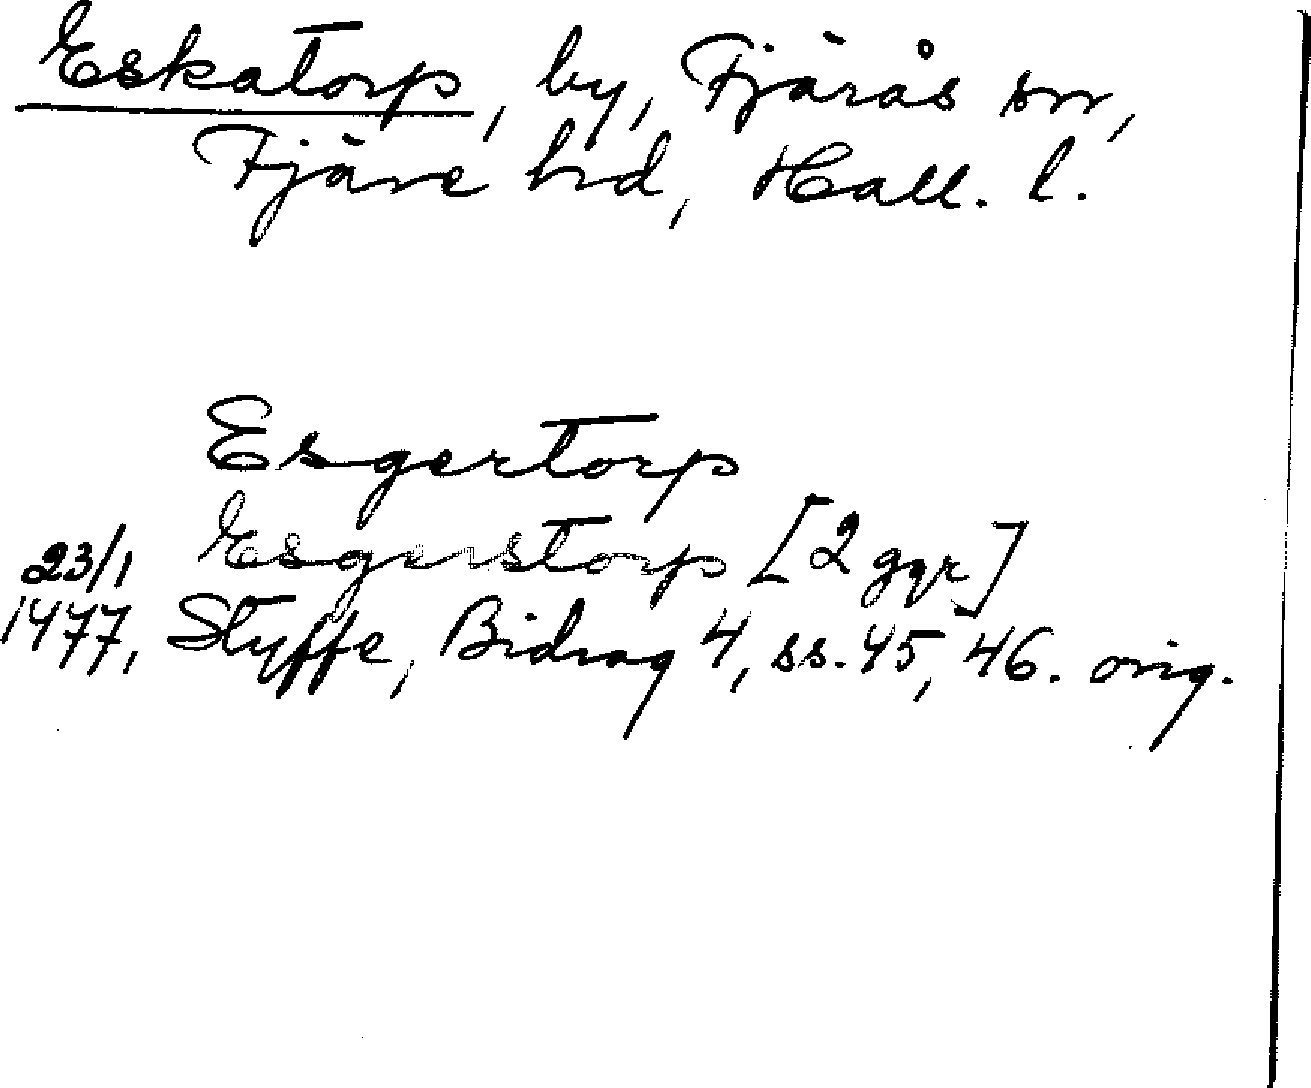 Eskatorp, by, Fjärås sn,
Fjäre hd, Hall. l.
Esgertorp
Esgerstorp [2 ggr]
23/1
1477, Styffe, Bidrag 4, ss. 45, 46. orig.